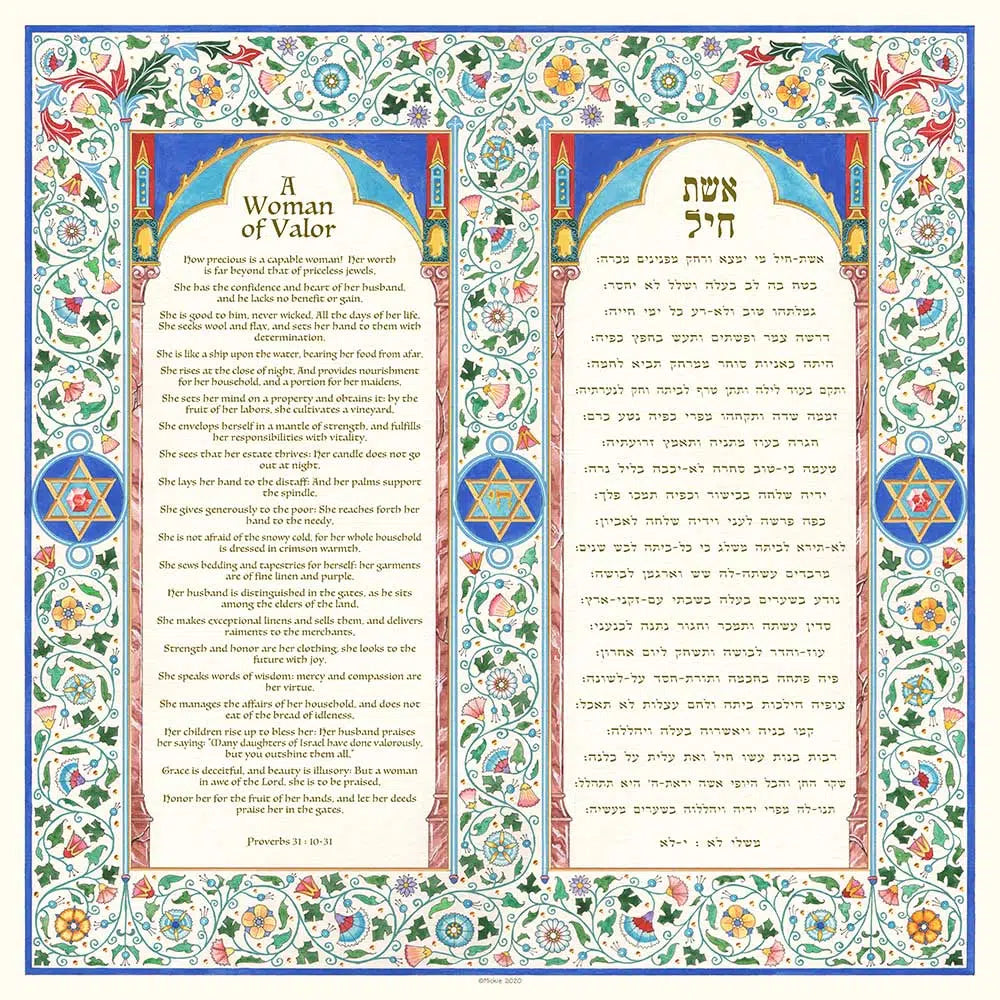 A
Woman
of Valor
How precious is a capable woman! Her worth
is far beyond that of priceless jewels.
She has the confidence and heart of her husband,
and he lacks no benefit or gain.
She is good to him, never wicked, All the days of her life.
She seeks wool and flax, and sets her hand to them with
determination.
She is like a ship upon the water, bearing her food from afar.
She rises at the close of night, And provides nourishment
for her household, and a portion for her maidens.
She sets her mind on a property and obtains it: by the
fruit of her labors, she cultivates a vineyard.
She envelops herself in a mantle of strength, and fulfills
her responsibilities with vitality.
She sees that her estate thrives: Her candle does not go
out at night.
She lays her hand to the distaff: And her palms support
the spindle.
She gives generously to the poor: She reaches forth her
hand to the needy.
She is not afraid of the snowy cold, for her whole household
is dressed in crimson warmth.
She sews bedding and tapestries for herself: her garments
are of fine linen and purple.
Her husband is distinguished in the gates, as he sits
among the elders of the land.
She makes exceptional linens and sells them, and delivers
raiments to the merchants.
Strength and honor are her clothing, she looks to the
future with joy.
She speaks words of wisdom: mercy and compassion are
her virtue.
She manages the affairs of her household, and does not
eat of the bread of idleness.
Her children rise up to bless her: Her husband praises
her saying: "Many daughters of Israel have done valorously,
but you outshine them all."
Grace is deceitful, and beauty is illusory: But a woman
in awe of the Lord, she is to be praised.
Honor her for the fruit of her hands, and let her deeds
praise her in the gates.
Proverbs 31 : 10-31
אשת
חיל
אשת-חיל מי ימצא ורחק מפנינים מכרה:
בטח בה לב בעלה ושלל לא יחסר:
גמלתהו טוב ולא-רע כל ימי חייה:
דרשה צמר ופשתים ותעש בחפץ כפיה:
היתה כאניות סוחר ממרחק תביא לחמה:
ותקם בעוד לילה ותתן טרף לביתה וחק לנערתיה:
זממה שדה ותקחהו מפרי כפיה נטע כרם:
חגרה בעוז מתניה ותאמץ זרועתיה:
טעמה כי-טוב סחרה לא-יכבה בליל נרה:
ידיה שלחה בכישור וכפיה תמכו פלך:
כפה פרשה לעני וידיה שלחה לאביון:
לא-תירא לביתה משלג כי כל-ביתה לבש שנים:
מרבדים עשתה-לה שש וארגמן לבושה:
נודע בשערים בעלה בשבתו עם-זקני-ארץ:
סדין עשתה ותמכר וחגור נתנה לכנעני:
עוז-והדר לבושה ותשחק ליום אחרון:
פיה פתחה בחכמה ותורת-חסד על-לשונה:
צופיה הילכות ביתה ולחם עצלות לא תאכל:
קמו בניה ויאשרוה בעלה ויהללה:
רבות בנות עשו חיל ואת עלית על כלנה:
שקר החן והבל היופי אשה יראת-ה' היא תתהלל:
תנו-לה מפרי ידיה ויהללוה בשערים מעשיה:
משלי לא : י-לא
©Mickie 2020